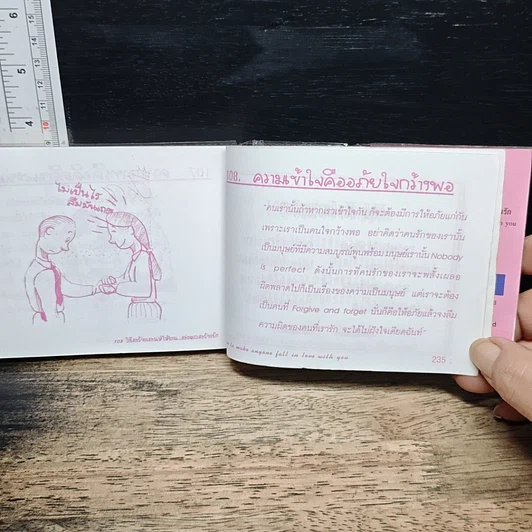 ไม่เป็นไร
ลืมมันเถอะ
108 วิธีเตรียมตนให้พบ...
108. ความเข้าใจคืออภัยใจกว้างพอ
"คนเรานั้นถ้าหากเราเข้าใจกัน ก็จะต้องมีการให้อภัยแก่กัน
เพราะเราเป็นคนใจกว้างพอ อย่าคิดว่าคนรักของเรานั้น
เป็นมนุษย์ที่มีความสมบูรณ์พูนพร้อม มนุษย์เรานั้น Nobody
is perfect ดังนั้นการที่คนรักของเราจะพลั้งเผลอ
ผิดพลาดไปก็เป็นเรื่องของความเป็นมนุษย์ แต่เราจะต้อง
เป็นคนที่ Forgive and forget นั่นก็คือให้อภัยแล้วจงลืม
ความผิดของคนที่เรารัก จะได้ไม่ฝังใจเคียดแค้น"
to make anyone fall in love with you
235